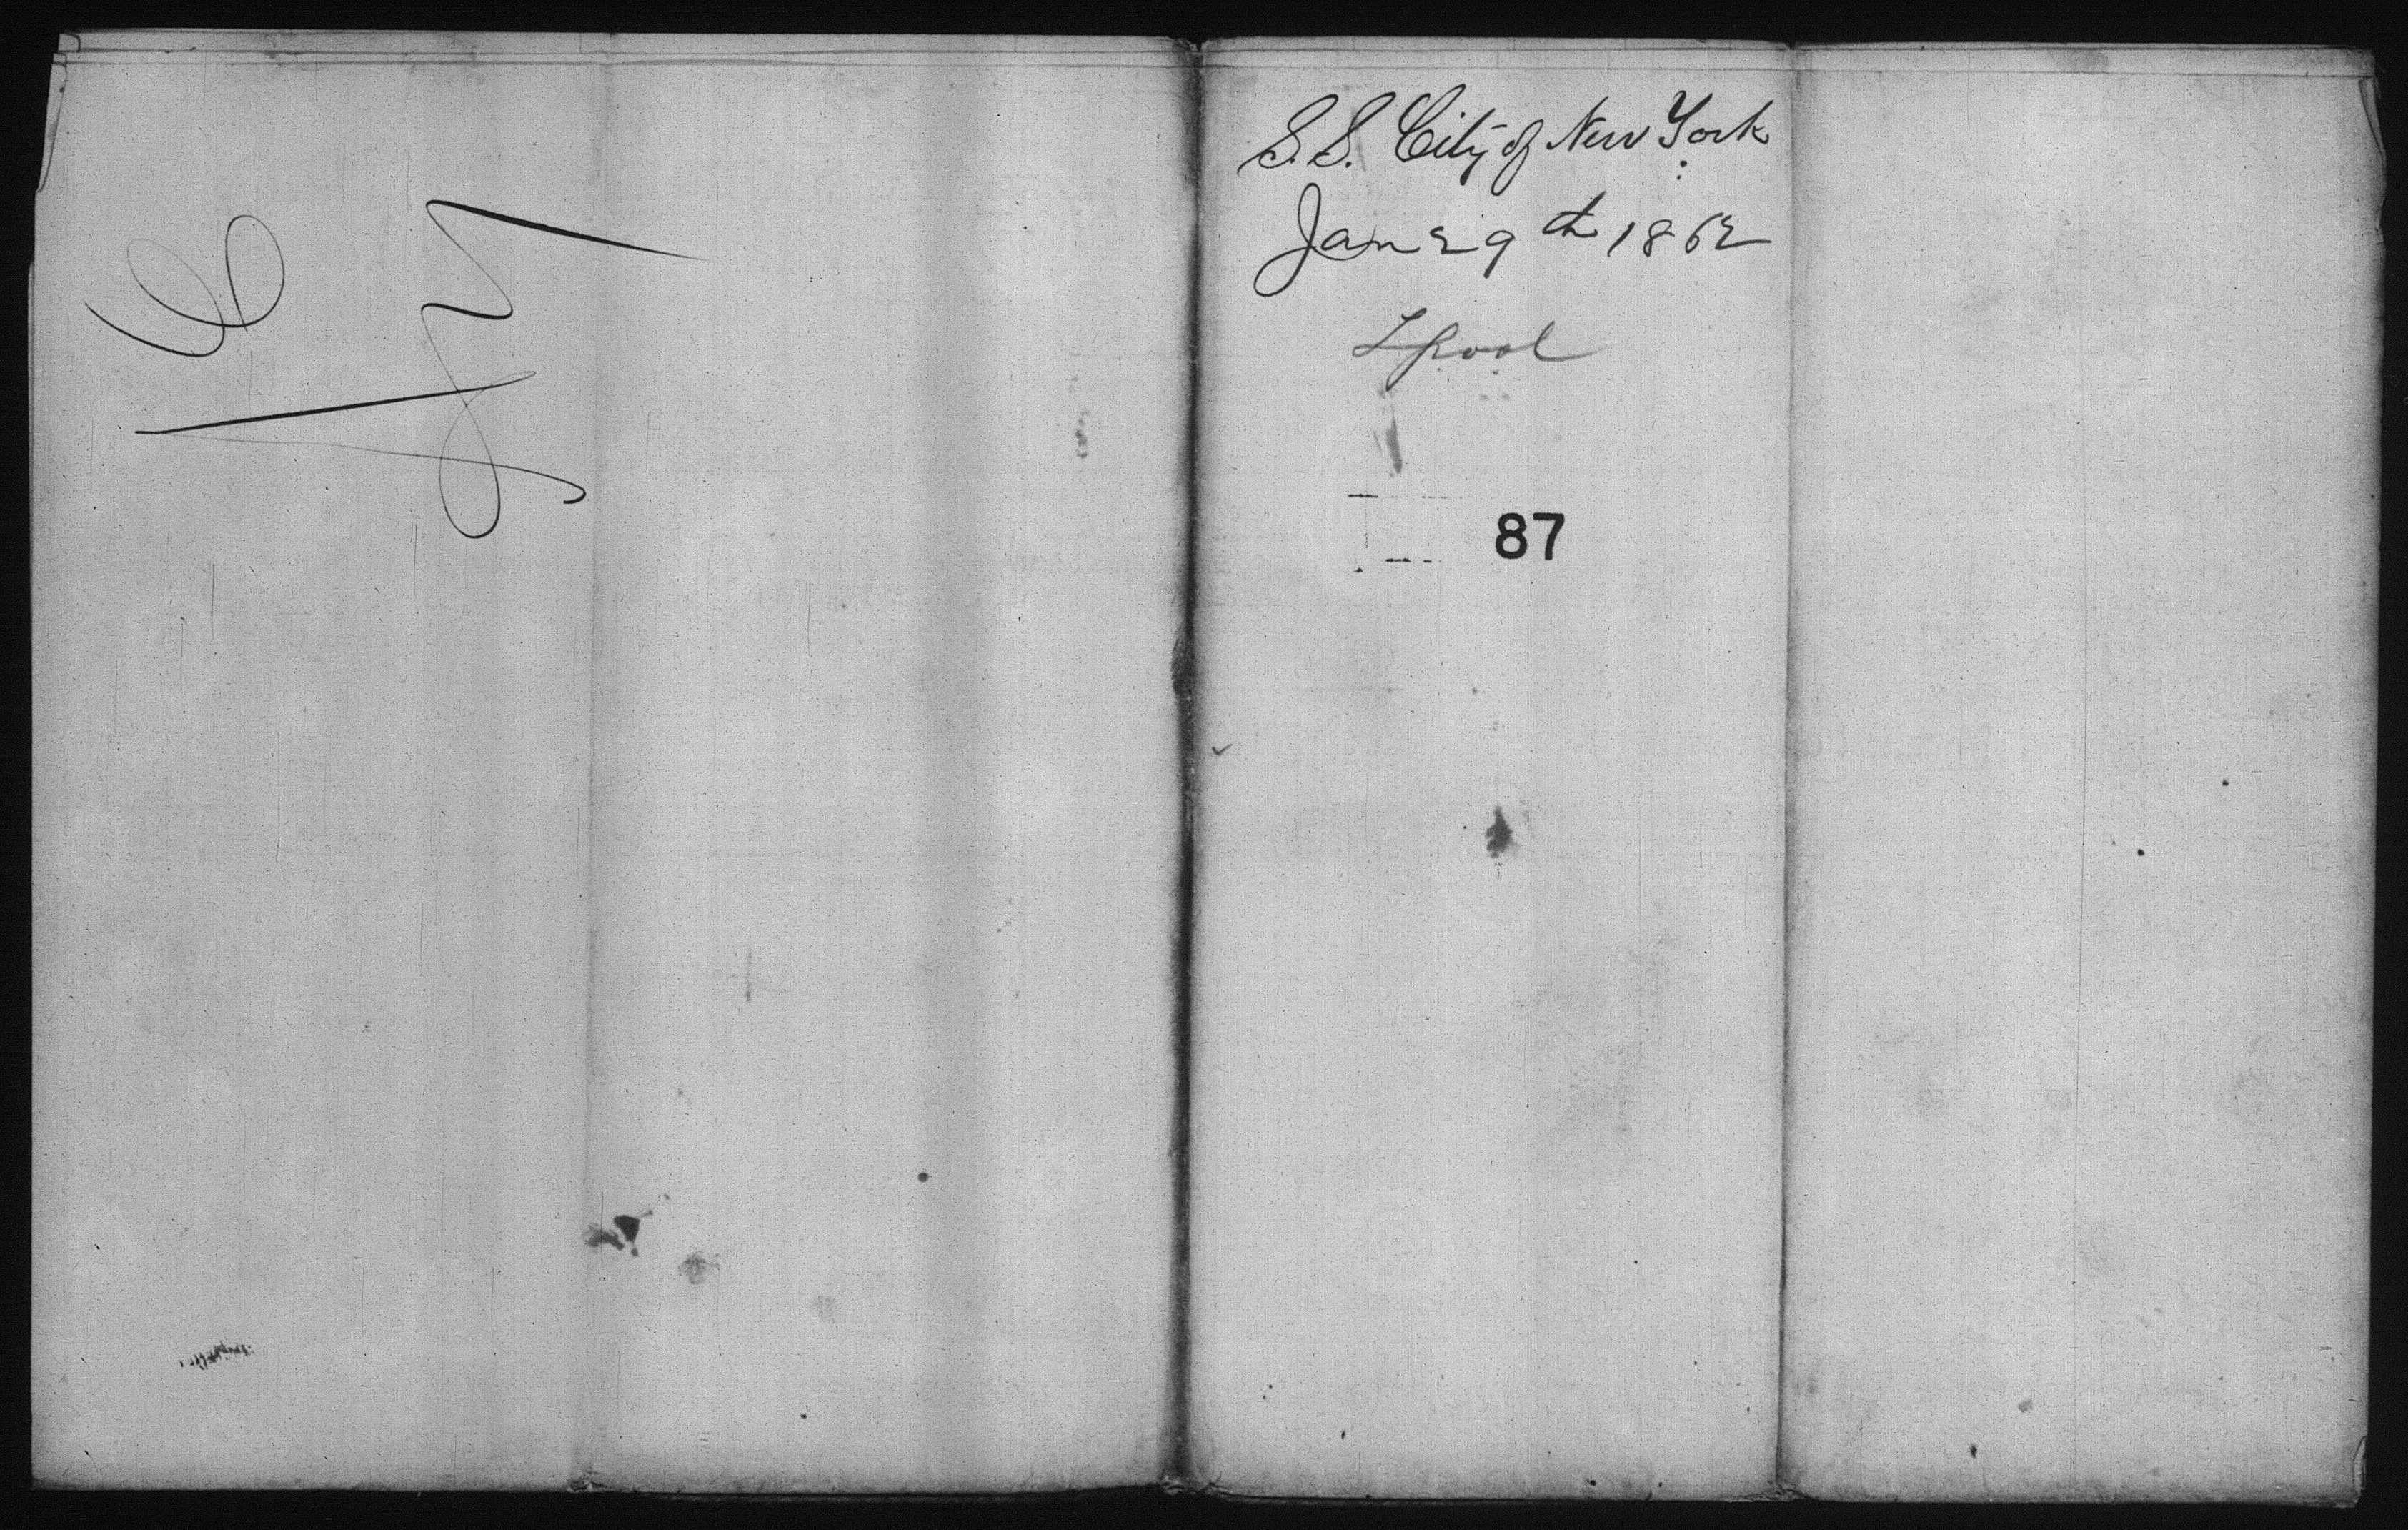 S.S. City of New York
Jan 29th 1862
Lpool
87